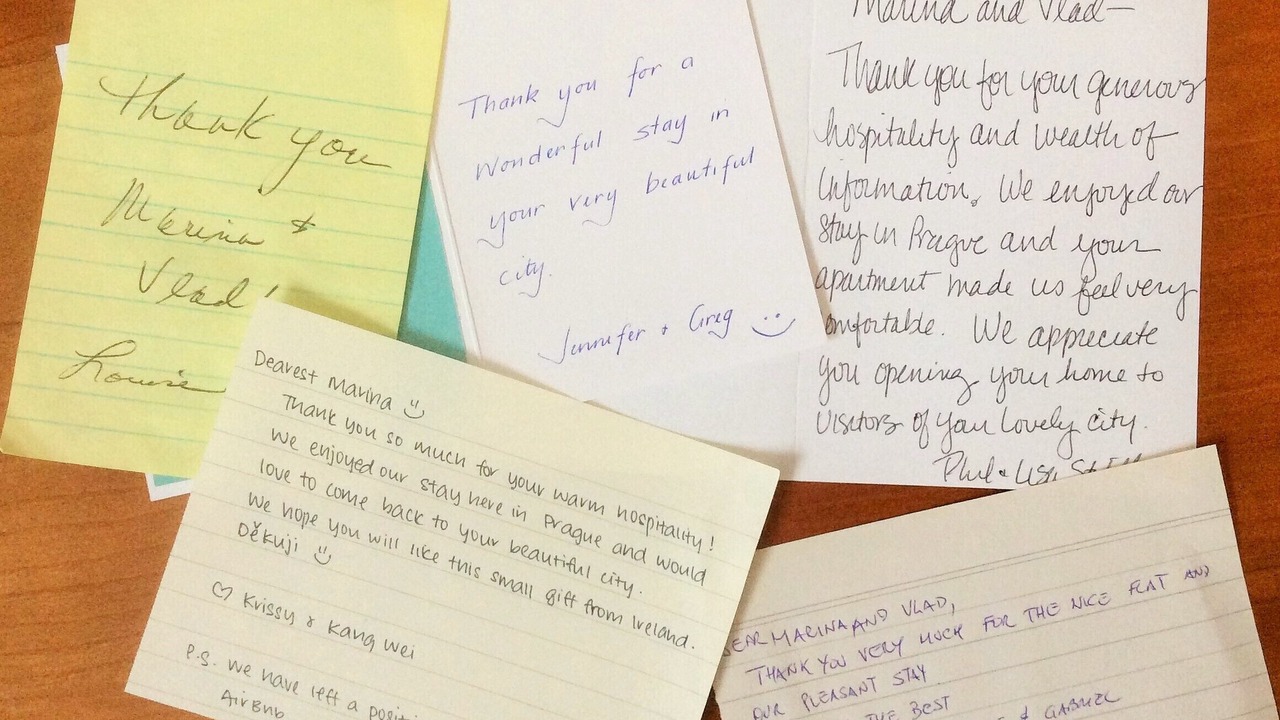 Thank you
Marina &
Vlad!
Louise
Thank you for a
wonderful stay in
your very beautiful
city.
Jennifer + Greg
Marina and Vlad—
Thank you for your generous
hospitality and wealth of
information. We enjoyed our
stay in Prague and your
apartment made us feel very
comfortable. We appreciate
you opening your home to
visitors of your lovely city.
Phil & Lisa
Dearest Marina
Thank you so much for your warm hospitality!
We enjoyed our stay here in Prague and would
love to come back to your beautiful city.
We hope you will like this small gift from Ireland.
Děkuji
Krissy & Kang Wei
P.S. We have left a positi
AirBnb
DEAR MARINA AND VLAD,
THANK YOU VERY MUCH FOR THE NICE FLAT AND
OUR PLEASANT STAY.
THE BEST
& GABRIEL